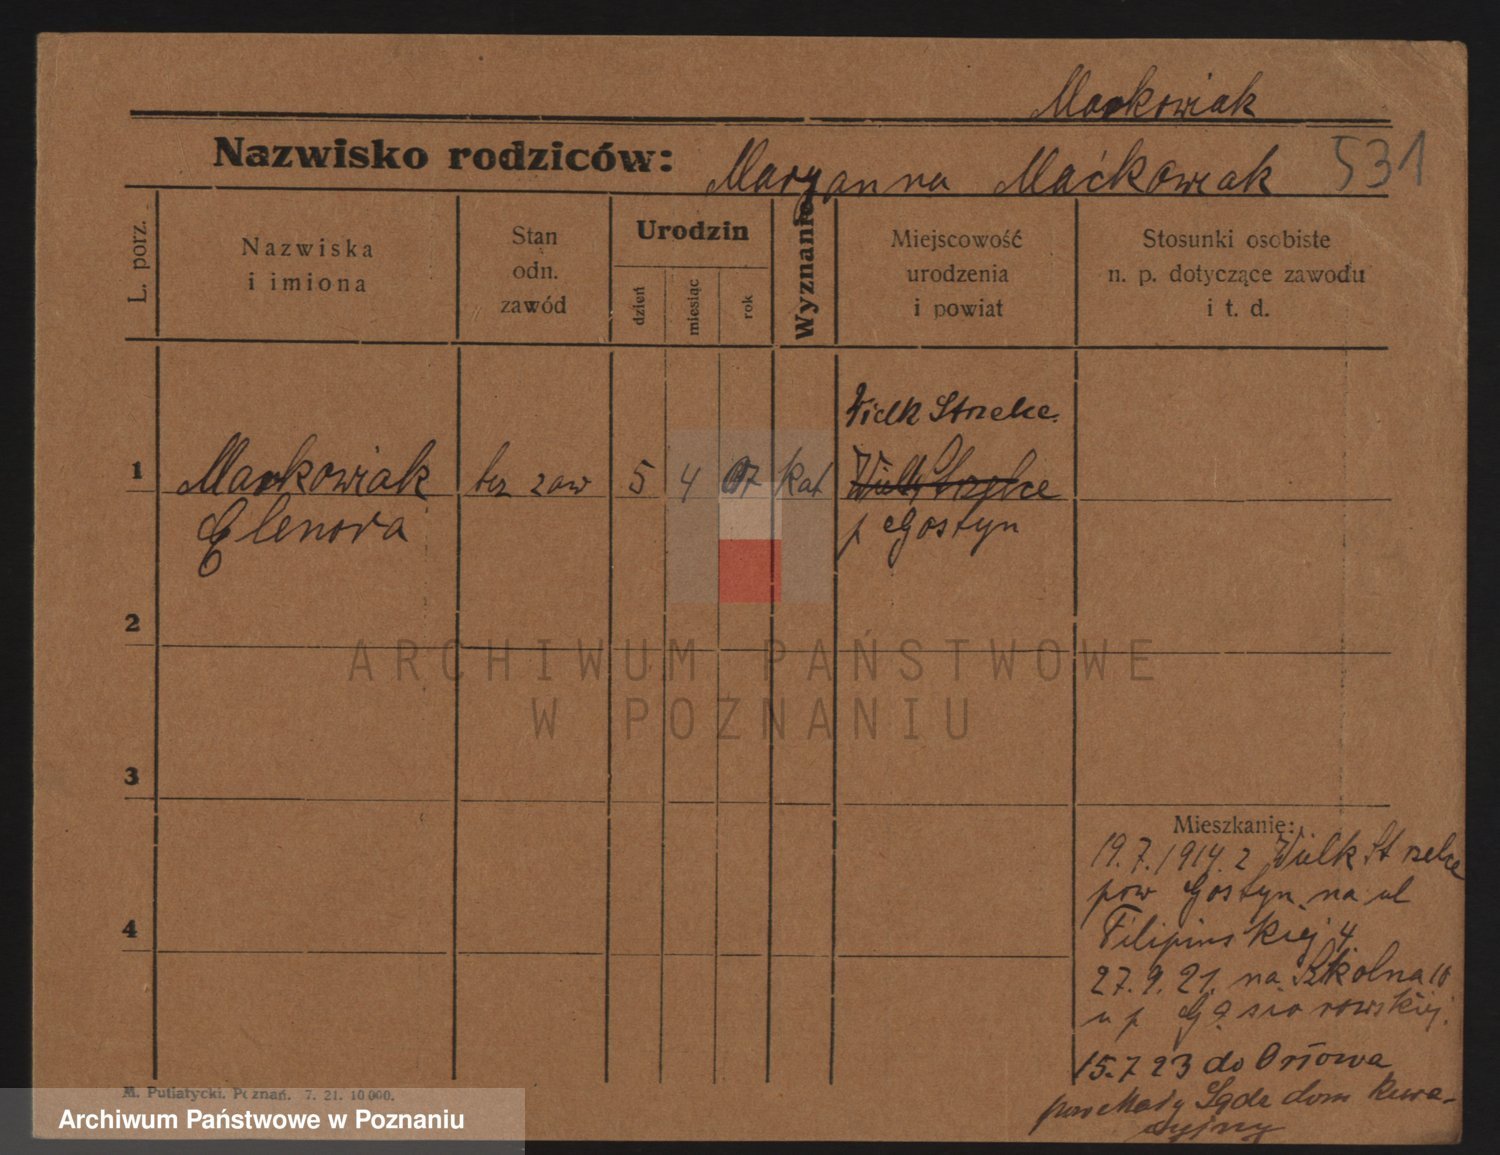 Markowiak
Nazwisko rodziców: Maryanna Maćkowiak 531
L. porz.
Nazwiska
i imiona
Stan
odn.
zawód
Urodzin
dzień
miesiąc
rok
Wyznanie
Miejscowość
urodzenia
i powiat
Stosunki osobiste
n. p. dotyczące zawodu
i t. d.
Wielk Strzelce
1 Markowiak bez zaw 5 4 07 kat Wielk Strzelce
Elenora p Gostyn
2
ARCHIWUM PAŃSTWOWE
W POZNANIU
3
Mieszkanie:
19.7.1914 z Wielk Strzelce
pow Gostyn na ul
4 Filipinskiej 4.
27.9.21. na Szkolna 10
u p Gąsiorowskiej.
15.7 23 do Orłowa
pow Sąda dom
M. Putiatycki. Poznań. 7. 21. 10000.
Archiwum Państwowe w Poznaniu